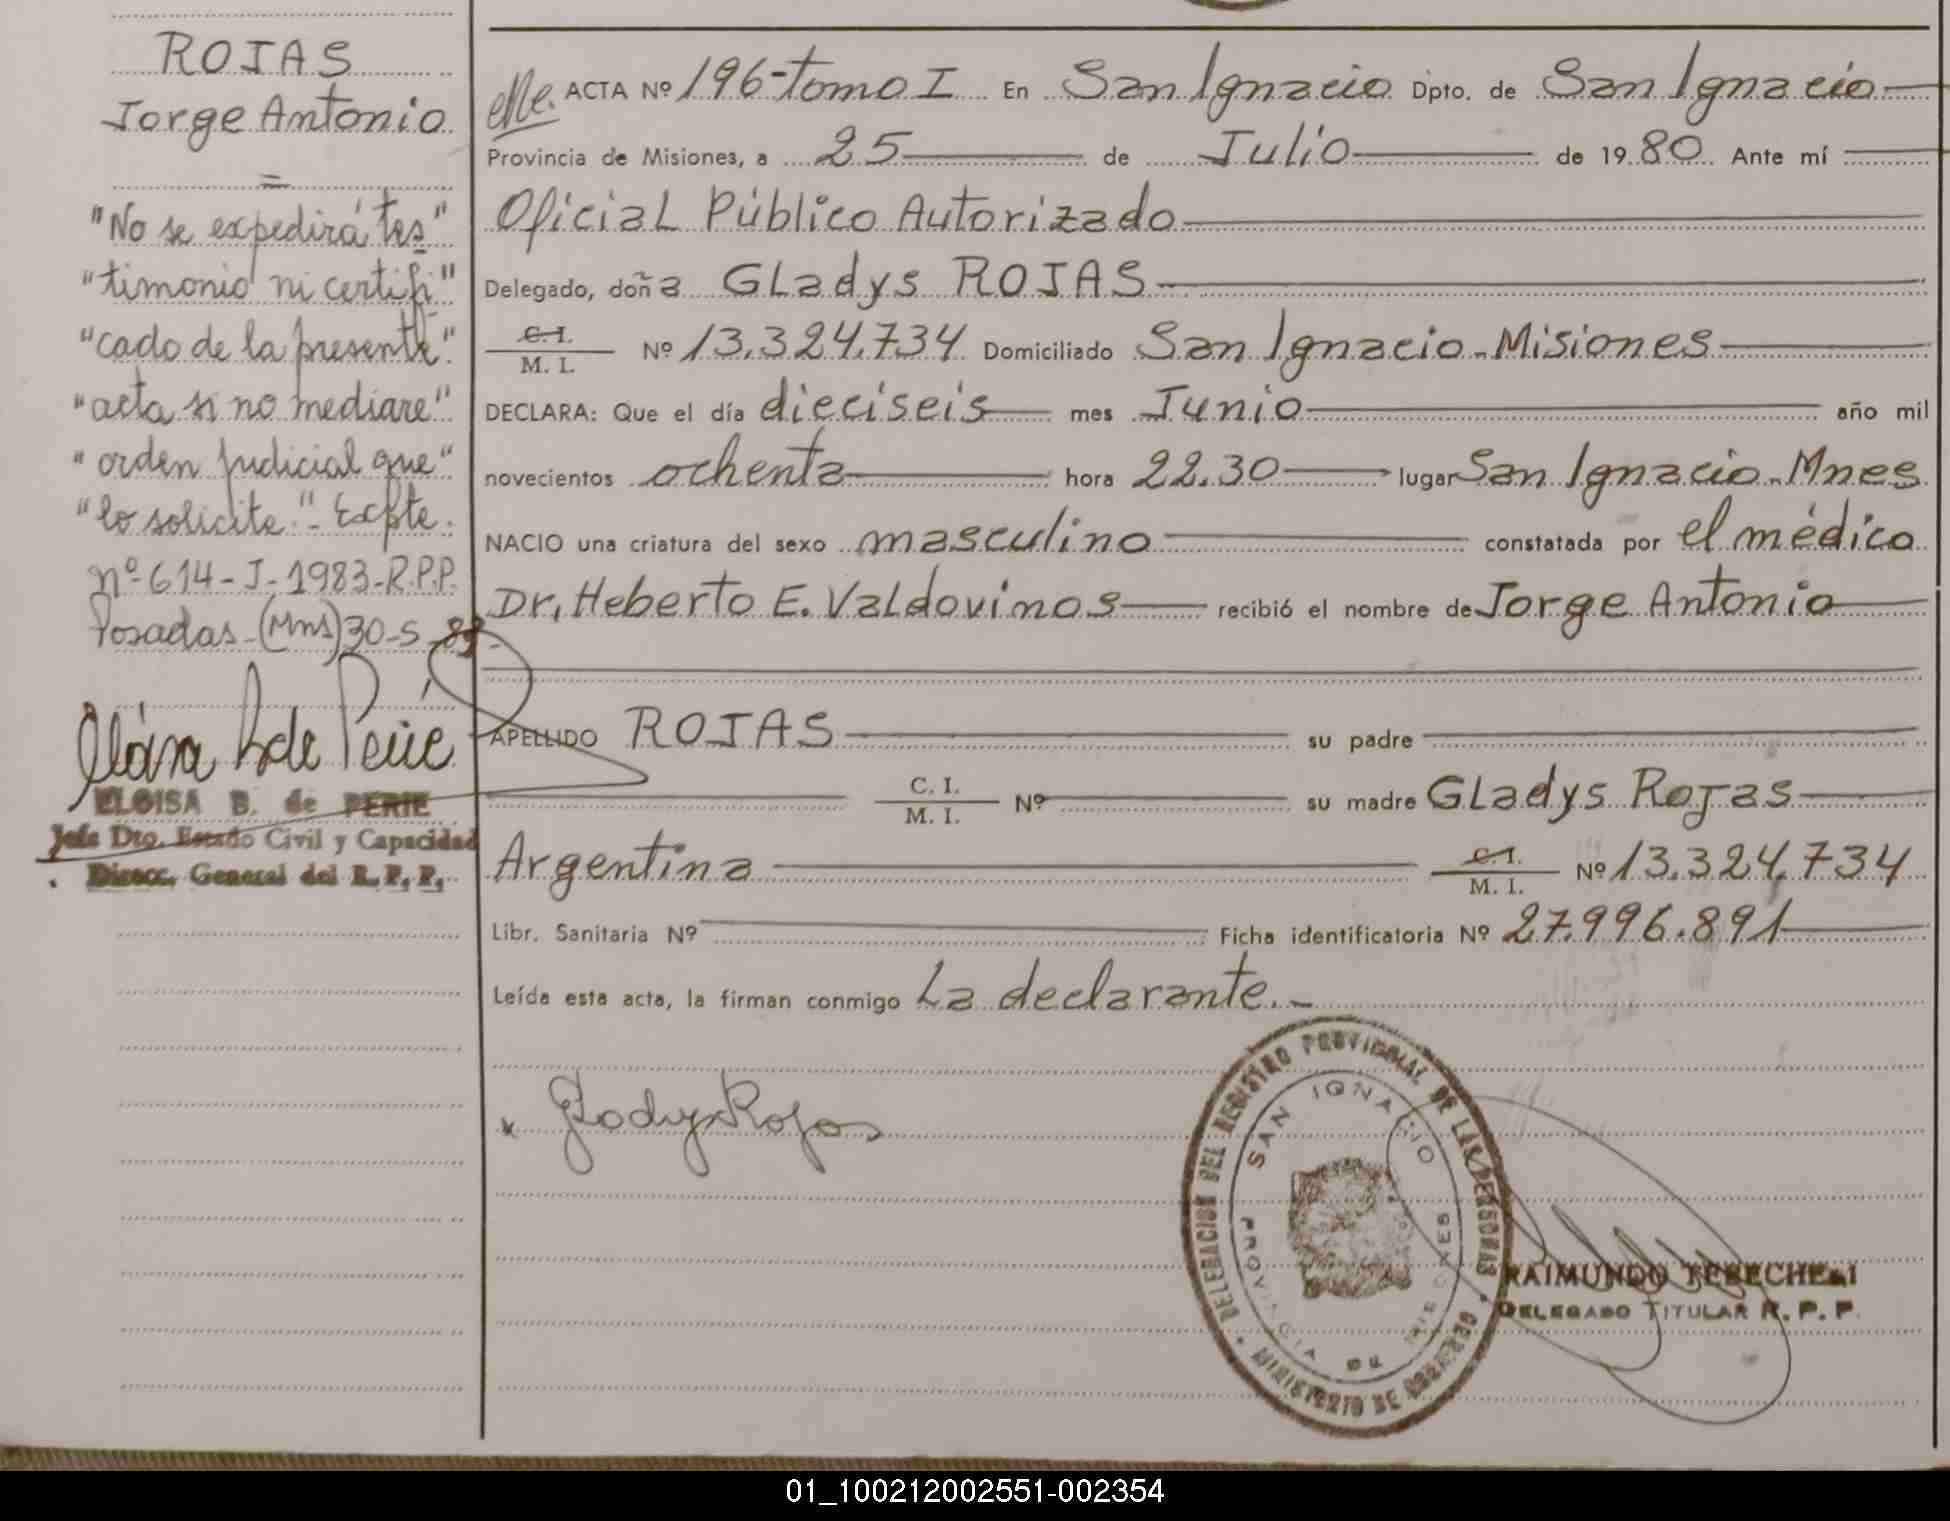 ROJAS
Jorge Antonio
=
"No se expedirá tes"
"timonio ni certifi"
"cado de la presente"
"acta si no mediare"
"orden judicial que"
"lo solicite." - Expte.
nº 614-J-1983-R.P.P.
Posadas-(Mns) 30-5-
ELOISA B. de PERIE
Jefa Dto. Estado Civil y Capacidad
Direcc. General del R. P. P.
ACTA Nº 196-tomo I En San Ignacio Dpto. de San Ignacio
Provincia de Misiones, a 25 de Julio de 1980 Ante mí
Oficial Público Autorizado
Delegado, doña Gladys ROJAS
C. I.
M. I. Nº 13.324.734 Domiciliado San Ignacio-Misiones
DECLARA: Que el día dieciseis mes Junio año mil
novecientos ochenta hora 22.30 lugar San Ignacio-Mnes
NACIO una criatura del sexo masculino constatada por el médico
Dr. Heberto E. Valdovinos recibió el nombre de Jorge Antonio
APELLIDO ROJAS su padre
C. I.
M. I. Nº su madre Gladys Rojas
Argentina C. I.
M. I. Nº 13.324.734
Libr. Sanitaria Nº Ficha identificatoria Nº 27.996.891
Leída esta acta, la firman conmigo La declarante.-
Gladys Rojas
DELEGACION DEL REGISTRO PROVINCIAL DE LAS PERSONAS
MINISTERIO DE GOBIERNO
SAN IGNACIO
PROVINCIA DE MISIONES
RAIMUNDO TEBECHERI
DELEGADO TITULAR R. P. P.
01_100212002551-002354